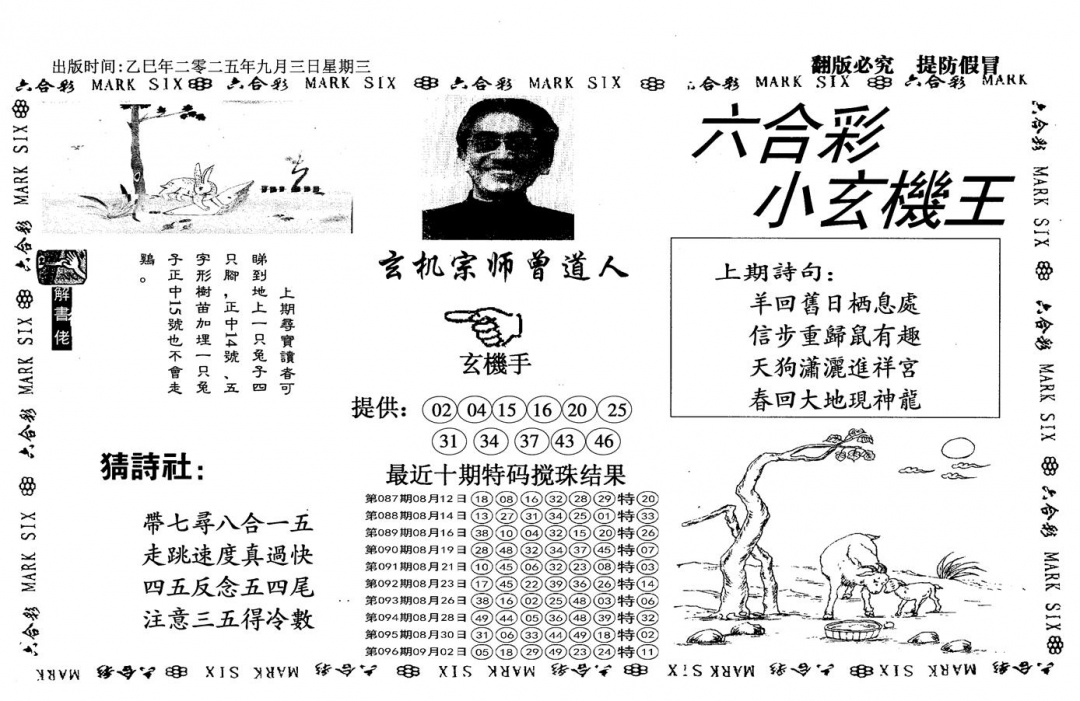 出版时间:乙巳年二零二五年九月三日星期三
翻版必究 提防假冒
六合彩 MARK SIX 六合彩 MARK SIX 六合彩 MARK SIX 六合彩 MARK SIX 六合彩 MARK
六合彩
小玄機王
玄机宗师曾道人
玄機手
提供: 02 04 15 16 20 25
31 34 37 43 46
上期詩句:
羊回舊日栖息處
信步重歸鼠有趣
天狗瀟灑進祥宮
春回大地現神龍
解書佬
上期尋寶讀者可
睇到地上一只兔子四
只腳,正中14號、五
字形樹苗加埋一只兔
子正中15號也不會走
鷄。
猜詩社:
帶七尋八合一五
走跳速度真過快
四五反念五四尾
注意三五得冷數
最近十期特码搅珠结果
第087期08月12日 18 08 16 32 28 29 特 20
第088期08月14日 13 27 31 34 25 01 特 33
第089期08月16日 38 10 04 32 15 20 特 26
第090期08月19日 28 48 32 34 37 45 特 07
第091期08月21日 10 45 06 32 23 08 特 03
第092期08月23日 17 45 22 39 36 26 特 14
第093期08月26日 38 16 02 25 48 03 特 06
第094期08月28日 49 44 05 36 48 39 特 32
第095期08月30日 31 06 33 44 49 18 特 02
第096期09月02日 05 18 29 49 23 24 特 11
六合彩 MARK SIX 六合彩 MARK SIX 六合彩 MARK SIX 六合彩 MARK SIX
六合彩 MARK SIX 六合彩 MARK SIX 六合彩 MARK SIX
MARK 六合彩 SIX MARK 六合彩 SIX MARK 六合彩 SIX MARK 六合彩 SIX MARK